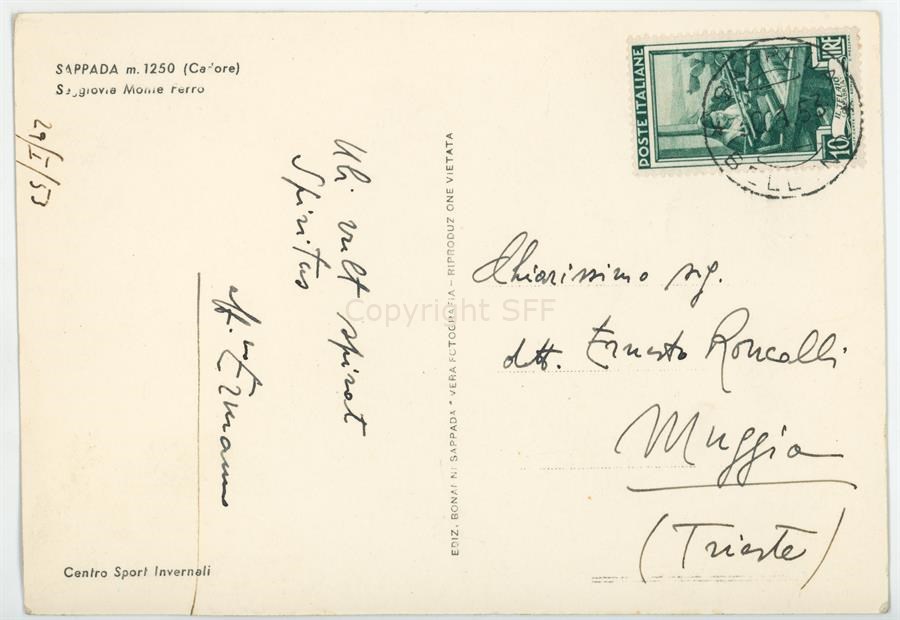 SAPPADA m. 1250 (Cadore)
Seggiovia Monte Ferro
29/I/53
Ubi vult spirat
Spiritus
aff.mo Ermanno
Centro Sport Invernali
EDIZ. BONAI NI SAPPADA * VERA FOTOGRAFIA - RIPRODUZ ONE VIETATA
POSTE ITALIANE
LIRE
10
IL TELAIO
BELL
53
Chiarissimo sig.
dott. Ernesto Roncalli
Muggia
(Trieste)
Copyright SFF